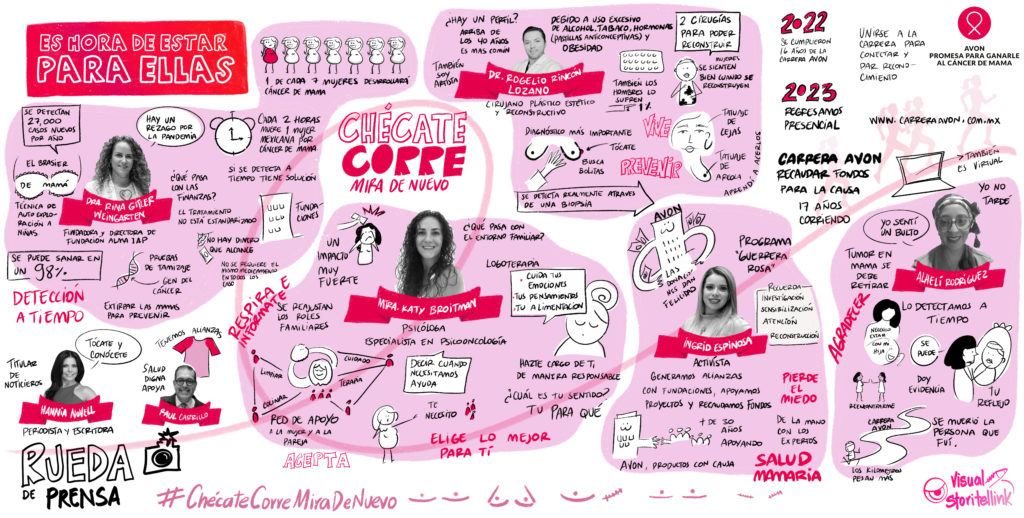 ES HORA DE ESTAR
PARA ELLAS
1 DE CADA 7 MUJERES DESARROLLARÁ
CÁNCER DE MAMA
SE DETECTAN
27,000
CASOS NUEVOS
POR AÑO
HAY UN
REZAGO POR
LA PANDEMIA
CADA 2 HORAS
MUERE 1 MUJER
MEXICANA POR
CÁNCER DE MAMA
EL BRASIER
DE MAMÁ
TÉCNICA DE
AUTO EXPLO-
RACIÓN A
NIÑAS.
DRA. RINA GITLER
WEINGARTEN
FUNDADORA Y DIRECTORA DE
FUNDACIÓN ALMA IAP
¿QUÉ PASA
CON LAS
FINANZAS?
SI SE DETECTA A
TIEMPO TIENE SOLUCIÓN
EL TRATAMIENTO
NO ESTÁ ESTANDARIZADO
FUNDA-
CIONES
NO HAY DINERO
QUE ALCANCE
NO SE REQUIERE EL
MISMO MEDICAMENTO
EN TODOS LOS
CASO
SE PUEDE SANAR EN
UN 98%
PRUEBAS
DE TAMIZAJE
GEN DEL
CÁNCER
EXTIRPAR LAS MAMAS
PARA PREVENIR
DETECCIÓN
A TIEMPO
CHÉCATE
CORRE
MIRA DE NUEVO
¿HAY UN PERFIL?
ARRIBA DE
LOS 40 AÑOS
ES MAS COMÚN
TAMBIÉN
SOY
ARTISTA
DR. ROGELIO RINCÓN
LOZANO
CIRUJANO PLÁSTICO ESTÉTICO
Y RECONSTRUCTIVO
DEBIDO A USO EXCESIVO
DE ALCOHOL, TABACO, HORMONAS
(PASTILLAS ANTICONCEPTIVAS) Y
OBESIDAD
TAMBIÉN LOS
HOMBRES LO
SUFREN
1%
2 CIRUGÍAS
PARA PODER
RECONSTRUIR
MUJERES
SE SIENTEN
BIEN CUANDO SE
RECONSTRUYEN
DIAGNÓSTICO MÁS IMPORTANTE
TÓCATE
BUSCA
BOLITAS
VIVE
PREVENIR
TATUAJE
DE
CEJAS
TATUAJE
DE
AREOLA
APRENDÍ A HACERLOS
SE DETECTA REALMENTE ATRAVES
DE UNA BIOPSIA
2022
SE CUMPLIERON
16 AÑOS DE LA
CARRERA AVON
UNIRSE A LA
CARRERA PARA
CONTAR Y
DAR RECONO-
CIMIENTO
AVON
PROMESA PARA GANARLE
AL CÁNCER DE MAMA
2023
REGRESAMOS
PRESENCIAL
WWW.CARRERAAVON.COM.MX
CARRERA AVON
RECAUDAR FONDOS
PARA LA CAUSA
17 AÑOS
CORRIENDO
> TAMBIÉN
ES VIRTUAL
UN
IMPACTO
MUY
FUERTE
¿QUÉ PASA CON
EL ENTORNO FAMILIAR?
LOGOTERAPIA
• CUIDA TUS
EMOCIONES
• TUS PENSAMIENTOS
• TU ALIMENTACIÓN
MTRA. KATY BROITMAN
PSICÓLOGA
ESPECIALISTA EN PSICOONCOLOGÍA
RESPIRA E
INFÓRMATE
SE REAJUSTAN
LOS ROLES
FAMILIARES
LIMPIAR
CUIDADO
TERAPIA
COCINAR
RED DE APOYO
A LA MUJER Y A LA
PAREJA
DECIR CUANDO
NECESITAMOS
AYUDA
TE
NECESITO
HAZTE CARGO DE TI,
DE MANERA RESPONSABLE
¿CUÁL ES TU SENTIDO?
TU PARA QUÉ
ELIGE LO MEJOR
PARA TÍ
ACEPTA
AVON
LAS
DONACIO-
NES DAN
FELICIDAD
PROGRAMA
"GUERRERA
ROSA"
RECUERDA:
INVESTIGACIÓN
SENSIBILIZACIÓN
ATENCIÓN
RECONSTRUCCIÓN
INGRID ESPINOSA
ACTIVISTA
GENERAMOS ALIANZAS
CON FUNDACIONES, APOYAMOS
PROYECTOS Y RECAUDAMOS FONDOS
+ DE 30
AÑOS
APOYANDO
AVON, PRODUCTOS CON CAUSA
PIERDE
EL
MIEDO
DE LA MANO
CON LOS
EXPERTOS
SALUD
MAMARIA
YO NO
TARDÉ
YO SENTÍ
UN BULTO
TUMOR EN
MAMA SE
DEBE
RETIRAR
ALHELÍ RODRÍGUEZ
AGRADECER
LO DETECTAMOS A
TIEMPO
CON MI
HIJA
SE
PUEDE
DOY
EVIDENCIA
TU
REFLEJO
RECONCILIARME
CARRERA
AVON
LOS KILÓMETROS
PESAN MÁS
SE MURIÓ LA
PERSONA QUE
FUÍ.
TITULAR
DE
NOTICIEROS
TÓCATE Y
CONÓCETE
HANNIA NOVELL
PERIODISTA Y ESCRITORA
TENEMOS ALIANZAS
SALUD
DIGNA
APOYA
RAUL CARRILLO
RUEDA
DE PRENSA
#ChécateCorreMiraDeNuevo
Visual
Storitellink